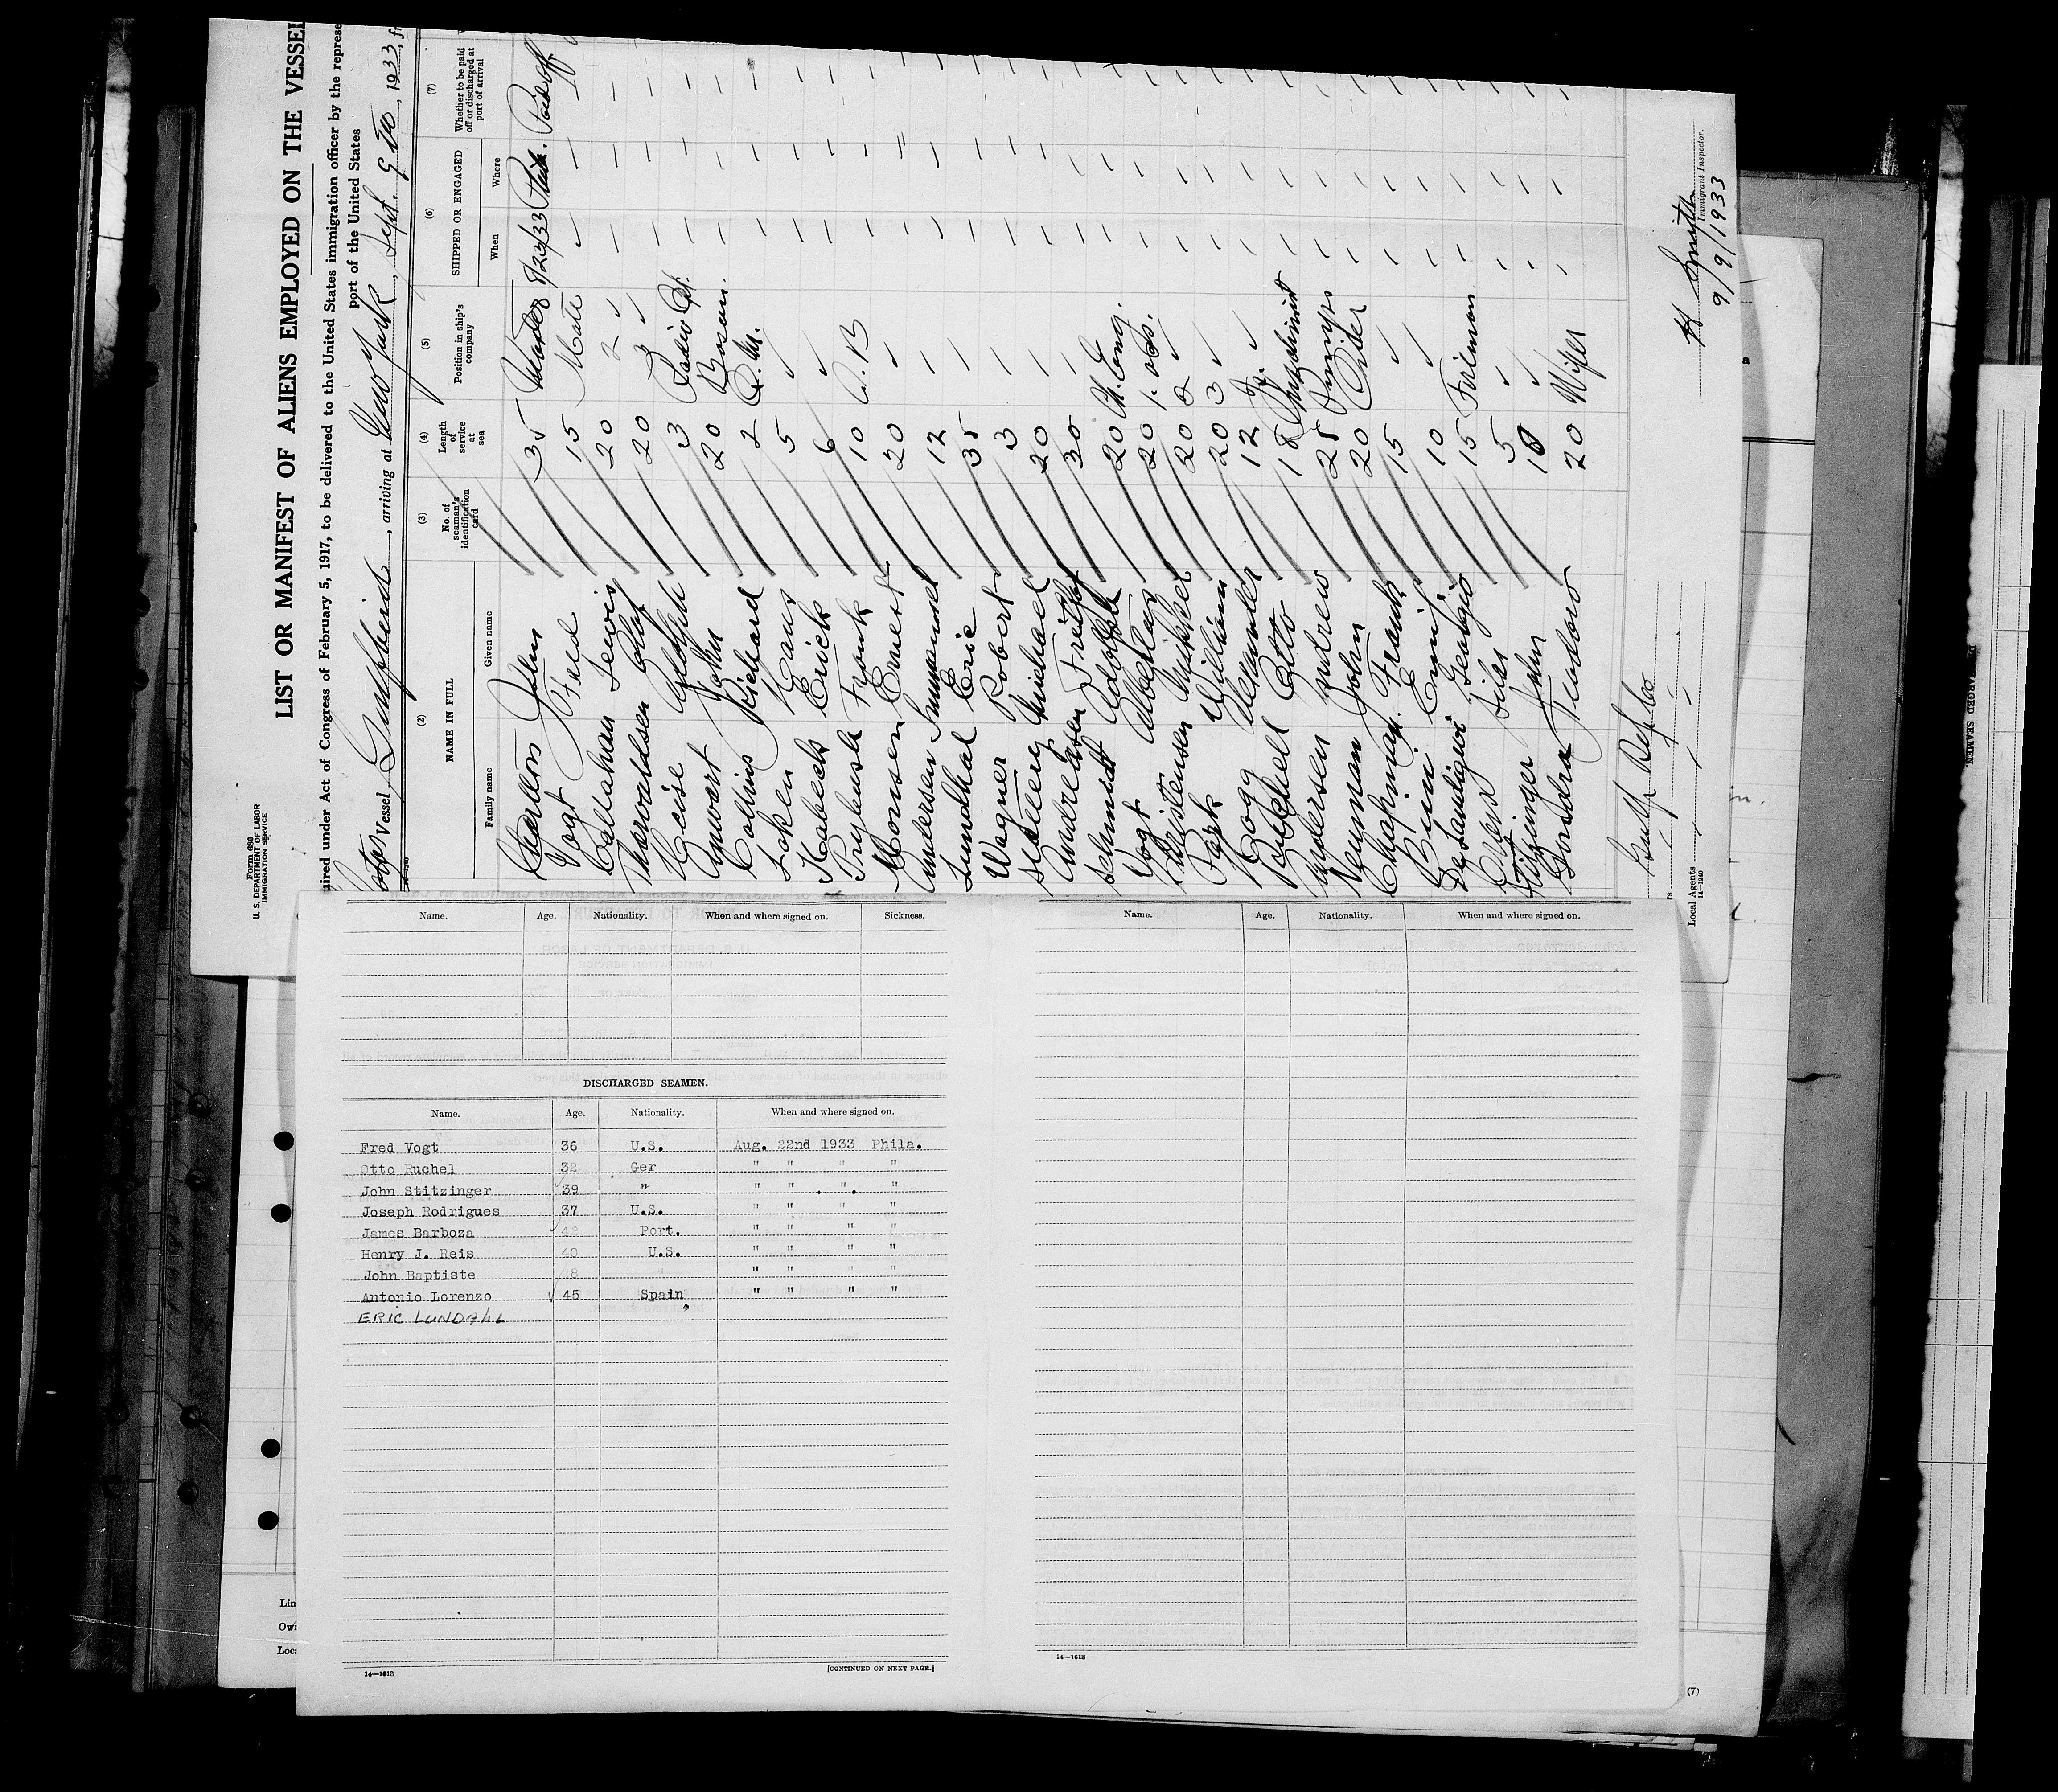 Form 680
U. S. DEPARTMENT OF LABOR
IMMIGRATION SERVICE
LIST OR MANIFEST OF ALIENS EMPLOYED ON THE VESSEL
uired under Act of Congress of February 5, 1917, to be delivered to the United States immigration officer by the represe
port of the United States
Vessel Gulfbird, arriving at New York, Sept. 9th, 1933, f
(2) (3) (4) (5) (6) (7)
NAME IN FULL
No. of seaman's identification card
Length of service at sea
Position in ship's company
SHIPPED OR ENGAGED
Whether to be paid off or discharged at port of arrival
Family name Given name When Where
Charlton John 35 Master 8/23/33 Phila. Paid off
Vogt Fred 15 Mate
Callahan Lewis 20 2 ✓
Thorvaldsen Olaf 20 3 ✓
Heise Adolph 3 Radio Op.
Anwart John 20 Bosun.
Collins Richard 2 Q.M.
Loken Hans 5 ✓
Kabeck Erick 6 ✓
Prybush Frank 10 A.B
Monsen Ernest 20
Andersen Immanuel 12
Lundhal Eric 35
Wagner Robert 3
Michael 20
Andreasen 30
Schmidt Adolph 20 Ch. Eng.
Vogt 20 1. ass.
Christensen Mikkel 20 2 ✓
Park William 20 3 ✓
Hogg Alexander 12 Jr. ✓
Otto 18
Andersen Andrew 25 Pumps
Neuman John 20 Oiler
Chapman Frank 15 ✓
Emil 10 ✓
15 Fireman
5 ✓
Stitzinger John 10 ✓
Teodoro 20 Wiper
Gulf Ref Co
Local Agents
14-1240
H Smyth
Immigrant Inspector.
9/9/1933
Name. Age. Nationality. When and where signed on. Sickness.
DISCHARGED SEAMEN.
Name. Age. Nationality. When and where signed on.
Fred Vogt 36 U.S. Aug. 22nd 1933 Phila.
Otto Ruchel 32 Ger " " " "
John Stitzinger 39 " " " " "
Joseph Rodrigues 37 U.S. " " " "
James Barboza 42 Port. " " " "
Henry J. Reis 40 U.S. " " " "
John Baptiste 48 " " " " "
Antonio Lorenzo 45 Spain " " " "
ERIC LUNDAHL
14—1613
[CONTINUED ON NEXT PAGE.]
Name. Age. Nationality. When and where signed on.
14—1613
(7)
Lin
Own
Loca